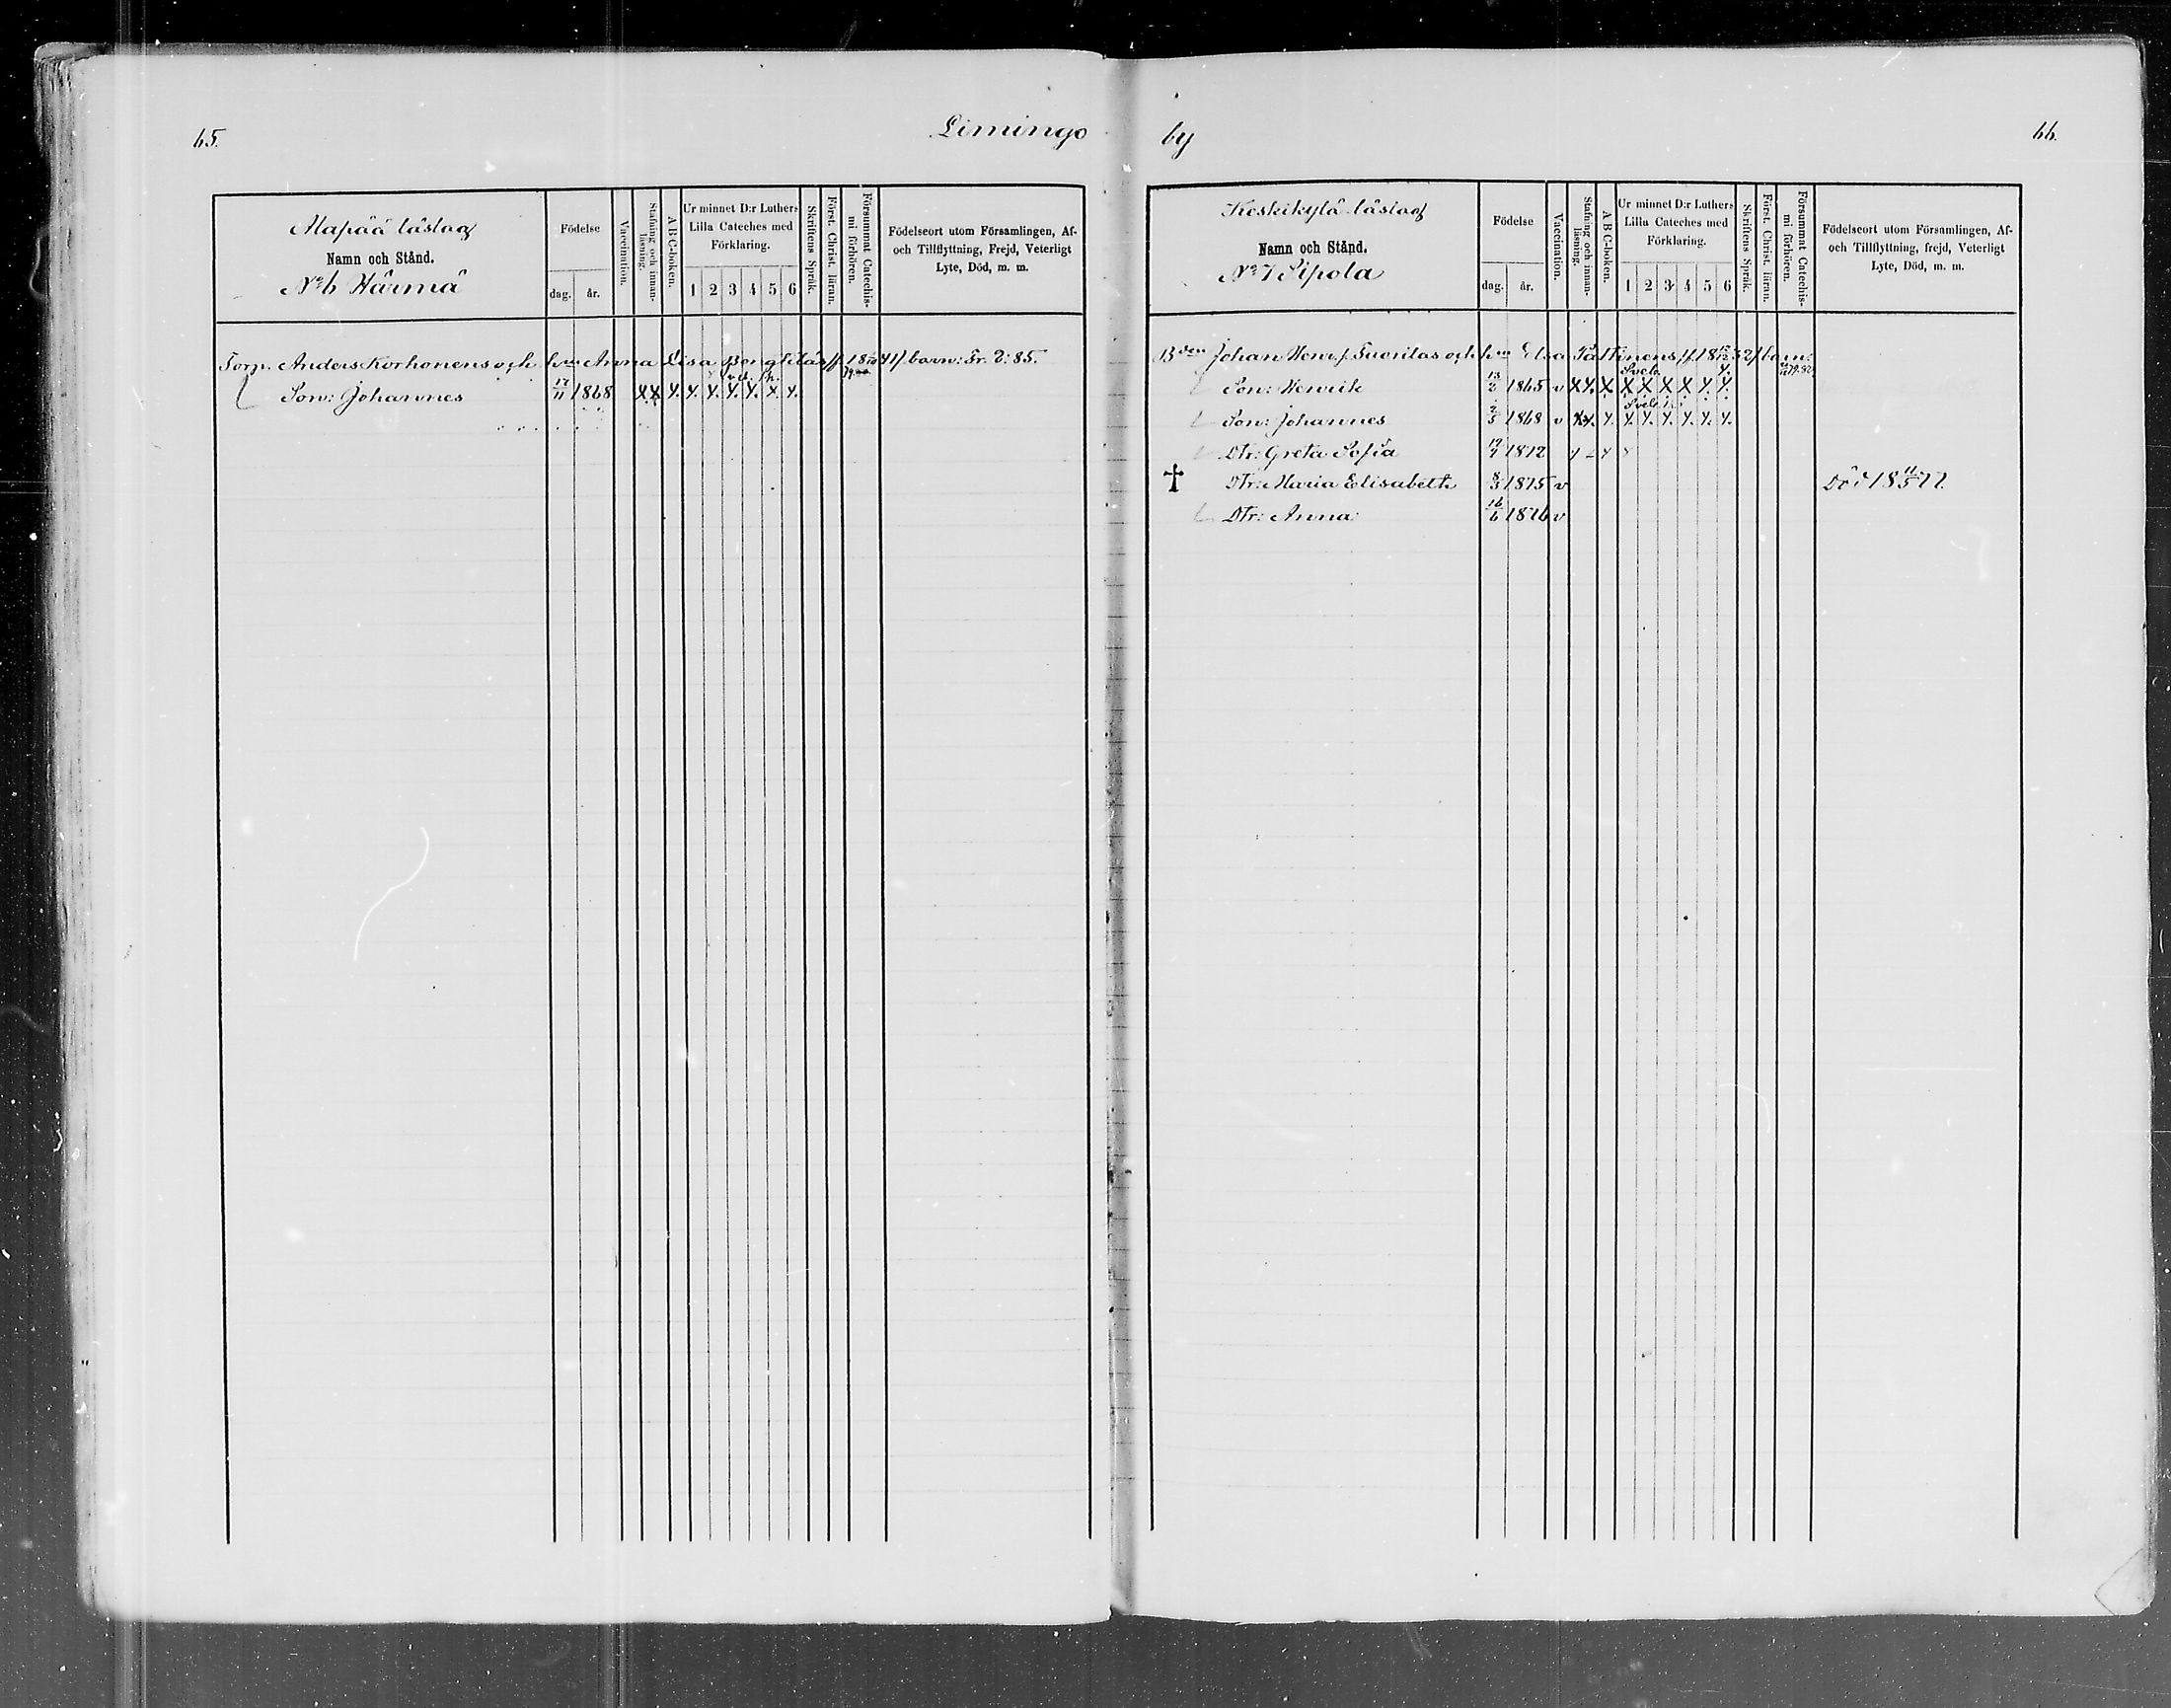 65.
Limingo
Alapää läslag
Namn och Stånd.
No 6 Härmä
Födelse
dag.
år.
Vaccination.
Stafning och innan-
läsning.
A B C-boken.
Ur minnet D:r Luthers
Lilla Cateches med
Förklaring.
1 2 3 4 5 6
Skriftens Språk.
Först. Christ. läran.
Försummat Catechis-
mi förhören.
Födelseort utom Församlingen, Af-
och Tillflyttning, Frejd, Veterligt
Lyte, Död, m. m.
Torp. Anders Korhonens och hun Anna Lisa barn: Fr. 2: 85.
Son: Johannes 17/11 1868
by
66.
Keskikylä läslag
Namn och Stånd.
No 7 Sipola
Födelse
dag.
år.
Vaccination.
Stafning och innan-
läsning.
A B C-boken.
Ur minnet D:r Luthers
Lilla Cateches med
Förklaring.
1 2 3 4 5 6
Skriftens Språk.
Först. Christ. läran.
Försummat Catechis-
mi förhören.
Födelseort utom Församlingen, Af-
och Tillflyttning, frejd, Veterligt
Lyte, Död, m. m.
Bden Johan Henr. f. Tuorilas och hun Elsa barn:
Son: Henrik 13/2 1865 v
Son: Johannes 2/5 1868 v
Dtr: Greta Sofia 1872
† Dtr: Maria Elisabeth 8/3 1875 v Död 18 11/5 77.
Dtr: Anna 16/6 1876 v